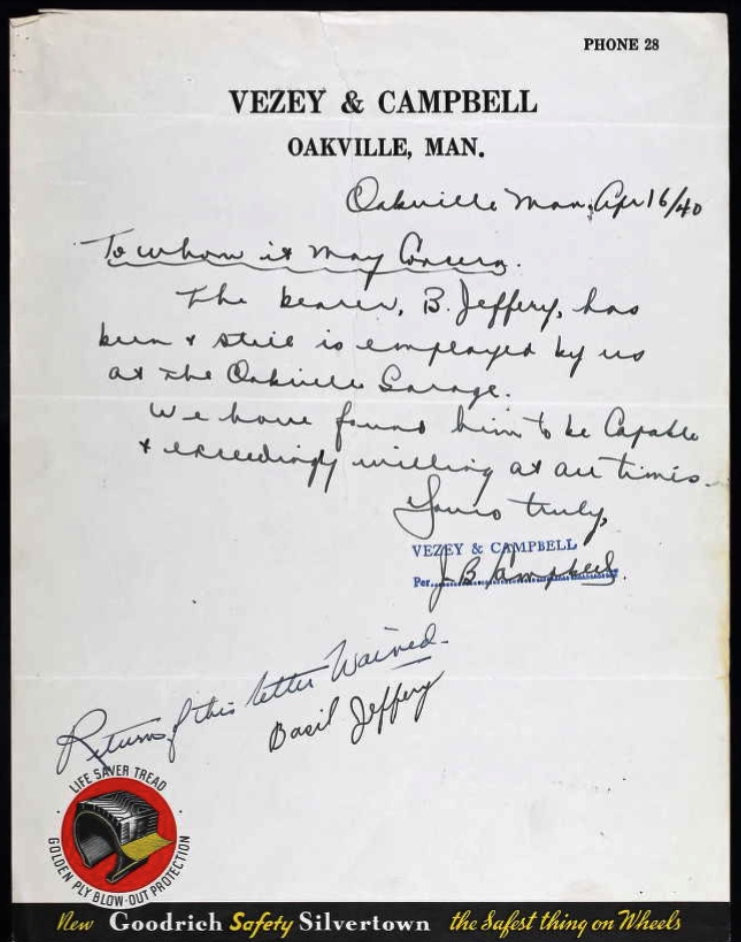 PHONE 28
VEZEY & CAMPBELL
OAKVILLE, MAN.
Oakville Man, Apr 16/40
To whom it may Concern.
The bearer, B. Jeffery, has
been & still is employed by us
at the Oakville Garage.
We have found him to be Capable
& exceedingly willing at all times.
Yours truly,
VEZEY & CAMPBELL
Per. J. B. Campbell.
Return of this letter Waived.
Basil Jeffery
LIFE SAVER TREAD
GOLDEN PLY BLOW-OUT PROTECTION
New Goodrich Safety Silvertown the Safest thing on Wheels